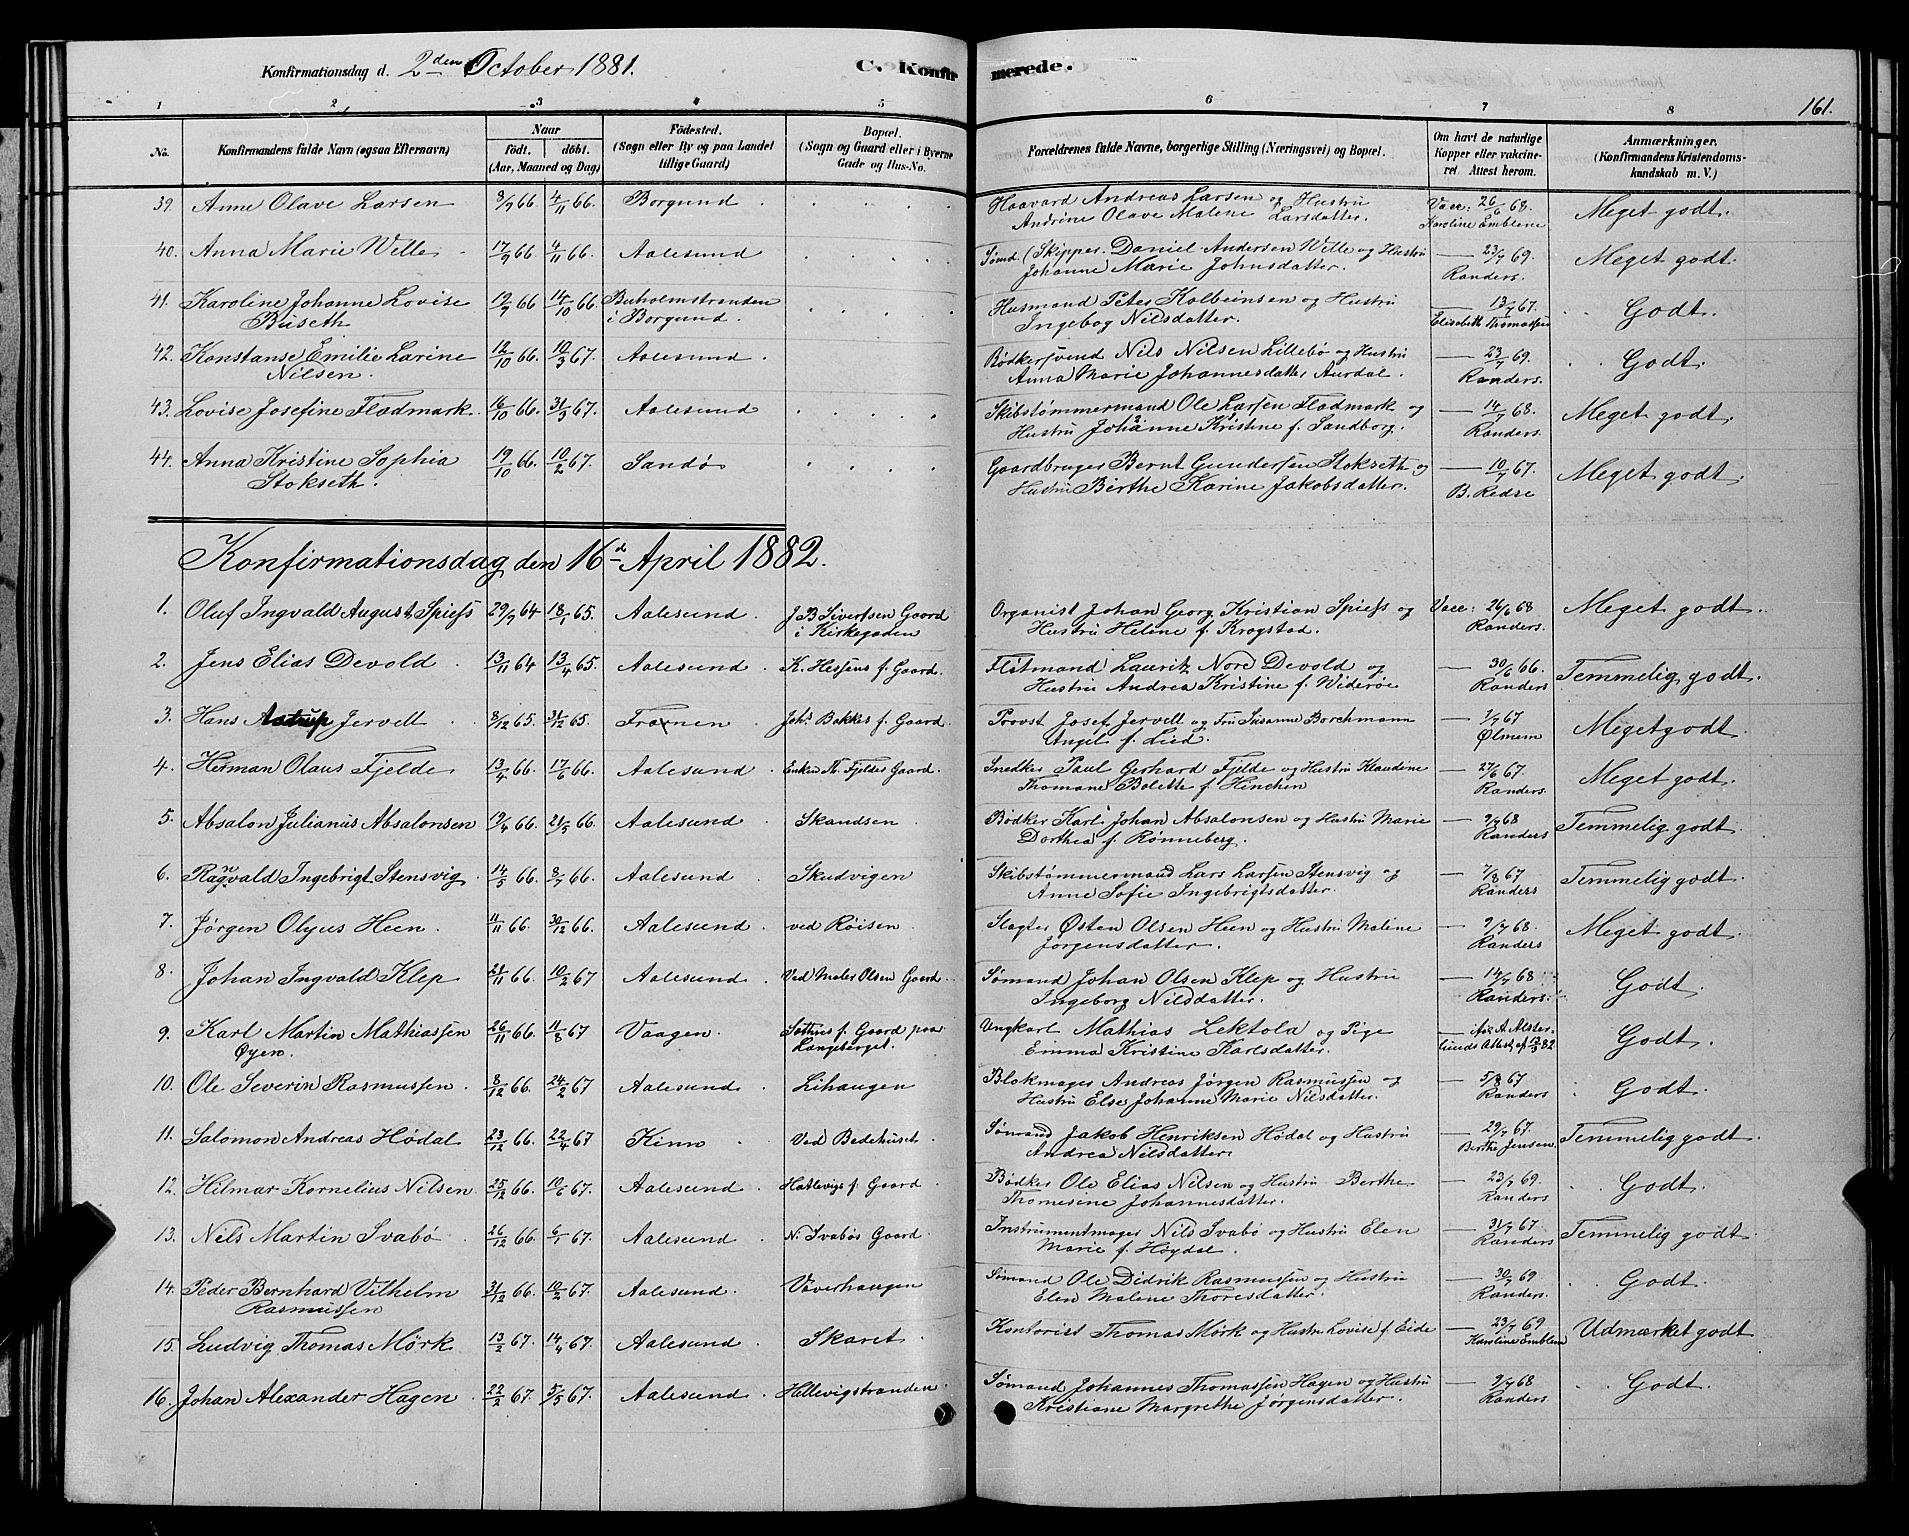 Konfirmationsdag d. 2den October 1881. C. Konfirmerede.
161.
1 2 3 4 5 6 7 8
No. Konfirmandens fulde Navn (ogsaa Efternavn) Naar født. døbt. (Aar, Maaned og Dag) Fødested. (Sogn eller By og paa Landet tillige Gaard) Bopæl. (Sogn og Gaard eller i Byerne Gade og Hus-No. Forældrenes fulde Navne, borgerlige Stilling (Næringsvei) og Bopæl. Om havt de naturlige Kopper eller vakcineret. Attest herom. Anmærkninger. (Konfirmandens Kristendomskundskab m. V.)
39. Anne Olave Larsen 8/9 66 4/11 66. Borgund Haavard Andreas Larsen og Hustru Vacc: 26/6 68. Meget godt.
Andrine Olave Malene Larsdatter. Karoline Emblem
40. Anna Marie Welle 17/9 66 4/11 66. Aalesund Sømd. (Skipper. Daniel Andersen Welle og Hustru — 23/7 69. Meget godt.
Johanne Marie Johnsdatter. Randers.
41. Karoline Johanne Lovise 19/9 66 14/10 66. Buholmstranden Husmand Peter Kolbeinsen og Hustru — 13/7 67. Godt.
Buseth i Borgund. Ingebog Nilsdatter. Elisabeth Thomassen
42. Konstanse Emilie Larine 12/10 66. 10/3 67. Aalesund Bødkersvend Nils Nilsen Lillebø og Hustru — 23/7 69. Godt.
Nilsen. Anna Marie Johannesdatter Aurdal. Randers.
43. Lovise Josefine Flodmark 16/10 66. 31/3 67. Aalesund Skibstømmermand Ole Larsen Flodmark og — 14/7 68. Meget godt.
Hustru Johanne Kristine f. Sandborg. Randers.
44. Anna Kristine Sophia 19/10 66. 10/2 67. Sandø Gaardbruger Bernt Gundersen Stokseth og — 10/7 67. Meget godt.
Stokseth. Hustru Birthe Karine Jakobsdatter. B. Redse
Konfirmationsdag den 16d April 1882.
1. Oluf Ingvald August Spiess 29/9 64 18/1 65. Aalesund J B Sivertsen Gaard Organist Johan Georg Kristian Spiess og Vacc: 26/6 68 Meget godt.
i Kirkegaden Hustru Helene f. Krogstad. Randers.
2. Jens Elias Devold 13/11 64 13/4 65. Aalesund K. Hessens f. Gaard. Flötmand Lauritz Nore Devold og — 30/6 66. Temmelig godt.
Hustru Andrea Kristine f. Widerøe Randers
3. Hans Astrup Jervell 8/12 65. 31/12 65. Frænen Johs Bakkes f. Gaard Provst Josef Jervell og Fru Susanne Borchmann — 1/7 67 Meget godt.
Angel f. Lied. Ølmem
4. Herman Olaus Fjelde 13/4 66. 17/6 66. Aalesund Enken Th. Fjeldes Gaard. Snedker Paul Gerhard Fjelde og Hustru Klaudine — 27/6 67. Meget godt.
Thomane Bolette f. Hinchen Randers.
5. Absalon Julianus Absalonsen 19/4 66. 21/5 66. Aalesund Skandsen Bødker Karl Johan Absalonsen og Hustru Marie — 9/7 68 Temmelig godt.
Dorthea f. Rønneberg. Randers
6. Ragnvald Ingebrigt Stensvig 14/5 66. 8/7 66. Aalesund Skudvigen Skibstømmermand Lars Larsen Stensvig og — 7/8 67 Temmelig godt.
Anne Sofie Ingebrigtsdatter. Randers
7. Jørgen Olyus Heen. 11/11 66. 30/12 66. Aalesund ved Røisen Slagter Østen Olsen Heen og Hustru Malene — 9/7 68. Meget godt.
Jørgensdatter. Randers
8. Johan Ingvald Klep 21/11 66. 10/2 67 Aalesund Ved Maler Olsen Gaard Sømand Johan Olsen Klep og Hustru — 14/7 68 Godt.
Ingeborg Nilsdatter. Randers.
9. Karl Martin Mathiassen 26/11 66. 11/8 67 Vaagen. Sathres f. Gaard paa Ungkarl Mathias Lektola og Pige Godt.
Øyen. Langeberget. Emma Kristine Karlsdatter. lunds Attest af 12/3 82
10. Ole Severin Rasmussen 8/12 66. 24/2 67 Aalesund Lihaugen Blokmager Andreas Jørgen Rasmussen og — 5/8 67 Godt.
Hustru Else Johanne Marie Nilsdatter. Randers
11. Salomon Andreas Hødal 23/12 66. 22/4 67 Kinn Ved Bedehuset Sømand Jakob Henriksen Hødal og Hustru — 29/7 67. Temmelig godt.
Andrea Nilsdatter Berthe Jensen
12. Hilmar Kornelius Nilsen 25/12 66. 10/6 67. Aalesund Hatlevigs f. Gaard Bødker Ole Elias Nilsen og Hustru Berthe — 23/7 69. Godt.
Thomesine Johannesdatter. Randers
13. Nils Martin Svabø 26/12 66. 6/1 67. Aalesund N. Svabøs Gaard Instrumentmager Nils Svabø og Hustru Elen — 31/7 67. Temmelig godt.
Marie f. Høydal. Randers
14. Peder Bernhard Vilhelm 31/12 66. 10/2 67. Aalesund Vaverhaugen Sømand Ole Didrik Rasmussen og Hustru — 30/7 69 Godt.
Rasmussen Elen Malene Thoresdatter. Randers.
15. Ludvig Thomas Mørk 13/2 67. 14/4 67. Aalesund Skaret Kontorist Thomas Mørk og Hustru Lovise f. Eide — 23/7 69 Udmærket godt
Karoline Emblem
16. Johan Alexander Hagen 22/2 67. 5/5 67. Aalesund Hellevigstranden Sømand Johannes Thomassen Hagen og Hustru — 9/7 68 Godt.
Kristiane Margrethe Jørgensdatter. Randers.